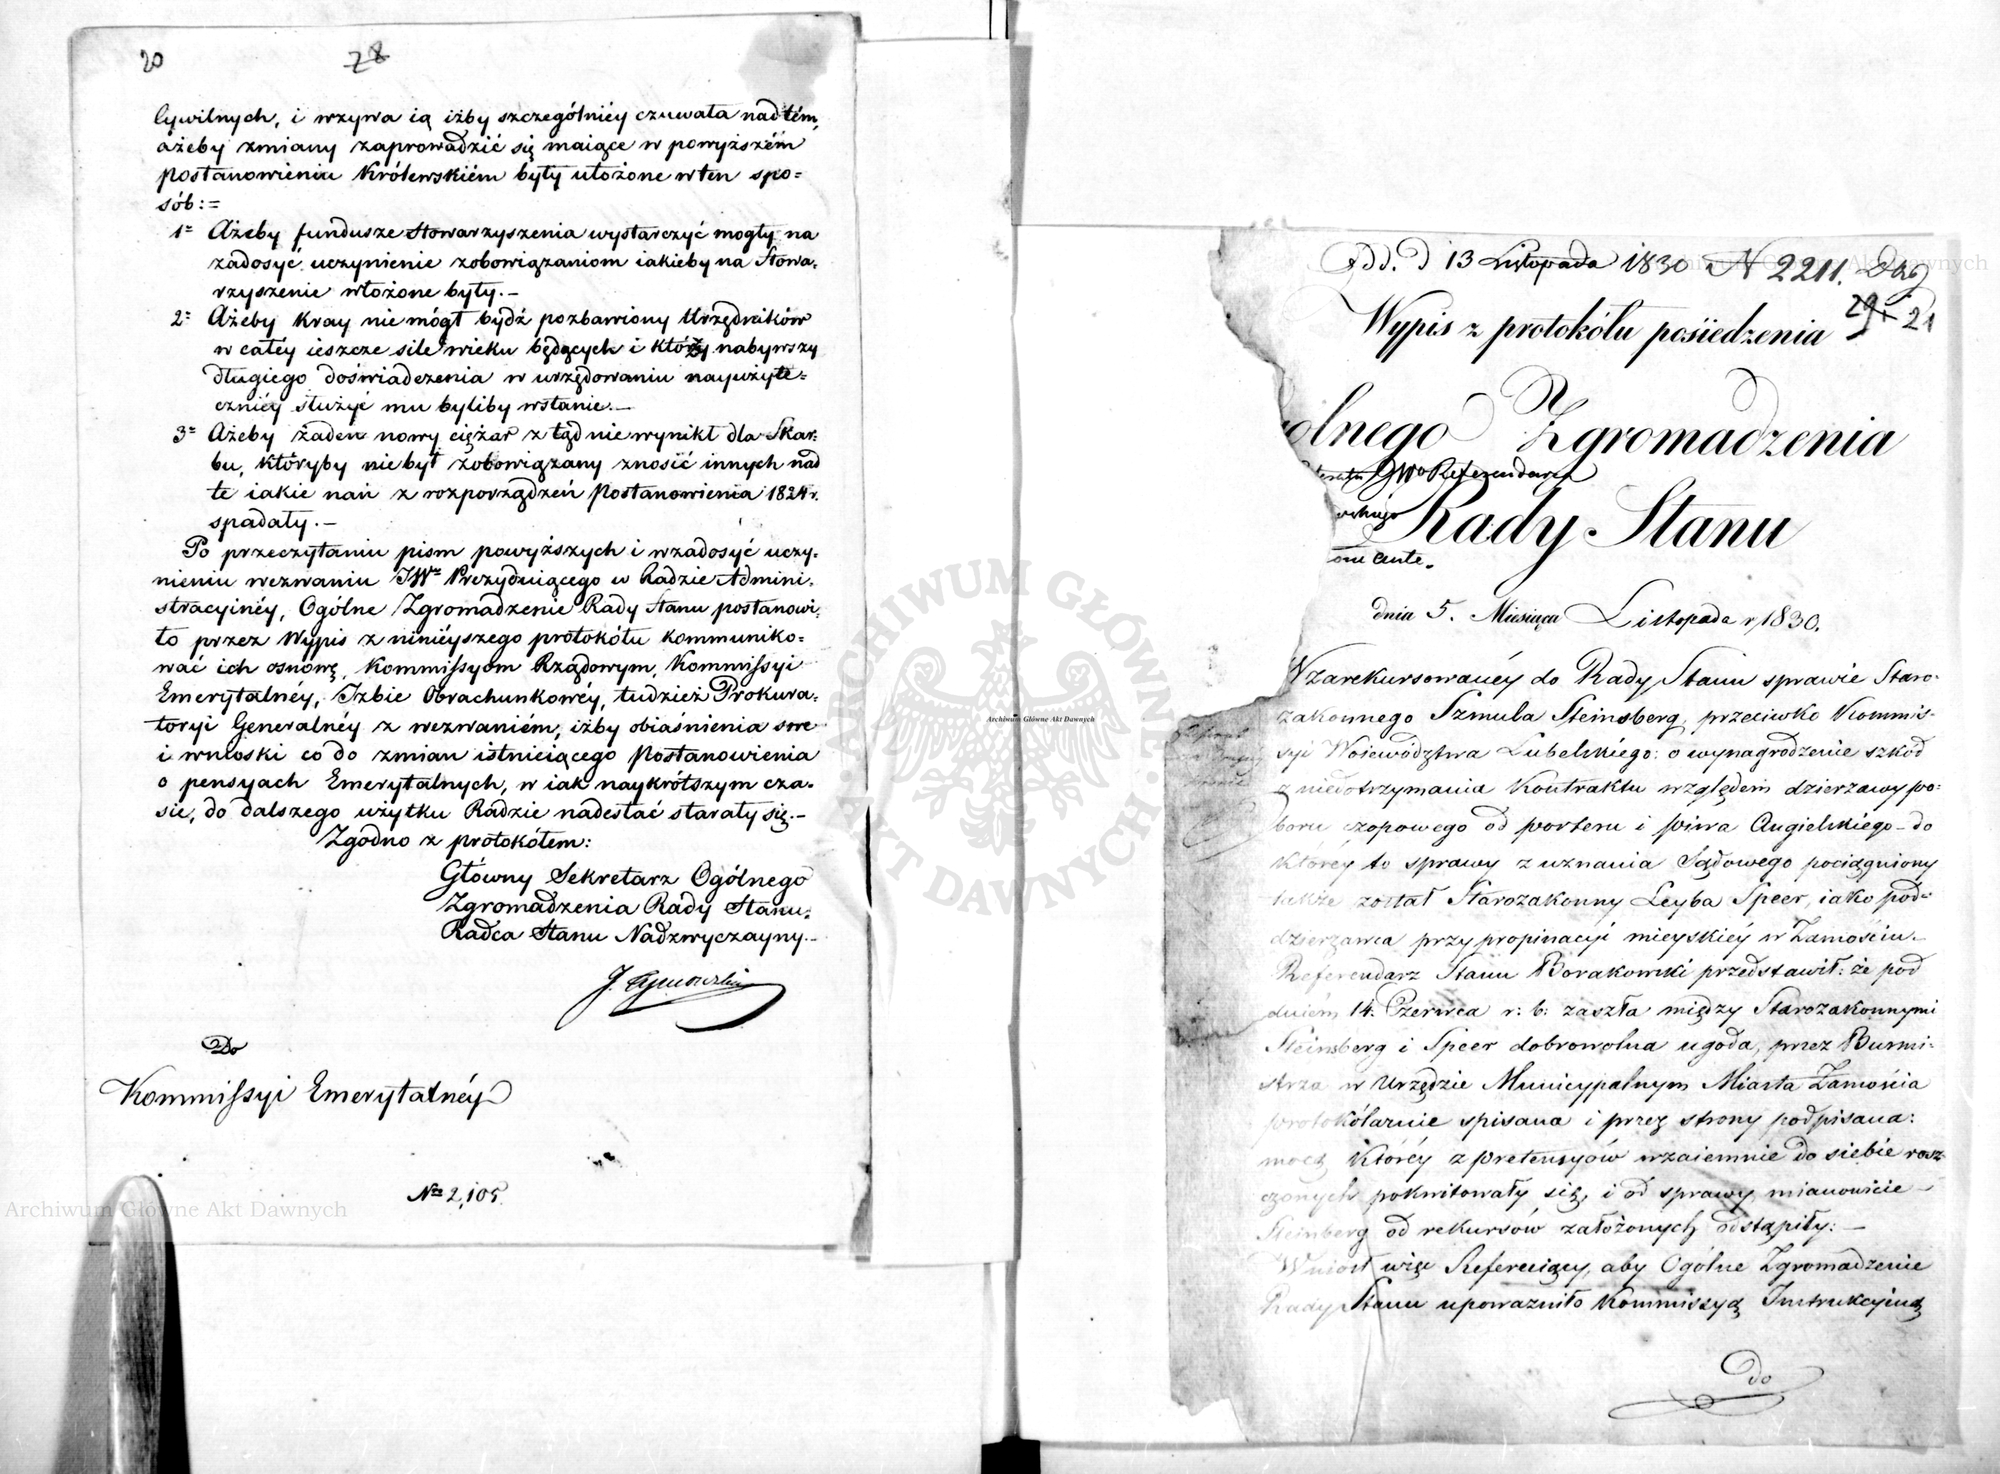 20
78
Cywilnych, i wzywa ią iżby szczególniéy czuwała nadtém,
ażeby zmiany zaprowadzić się maiące w powyższém
Postanowieniu Królewskiém były ułożone w ten spo=
sób:=
1= Ażeby fundusze Stowarzyszenia wystarczyć mogły na
zadosyć uczynienie zobowiązaniom iakieby na Stowa-
rzyszenie włożone były.-
2= Ażeby Kray nie mógł bydź pozbawiony Urzędników
w całéy ieszcze sile wieku będących i którzy nabywszy
długiego doświadczenia w urzędowaniu nayużyte=
czniéy służyć mu byliby wstanie.-
3= Ażeby żaden nowy ciężar z tąd nie wynikł dla Skar-
bu, któryby niebył zobowiązany znosić innych nad
te iakie nań z rozporządzeń Postanowienia 1824 r.
spadały.-
Po przeczytaniu pism powyższych i wzadosyć uczy-
nieniu wezwaniu JWo Prezyduiącego w Radzie Admini-
stracyinéy, Ogólne Zgromadzenie Rady Stanu postanowi-
ło przez Wypis z ninieyszego protokółu kommuniko-
wać ich osnowę, Kommissyom Rządowym, Kommissyi
Emerytalnéy, Izbie Obrachunkowéy, tudzież Prokura-
toryi Generalnéy z wezwaniém, iżby obiaśnienia swe
i wnioski co do zmian istnieiącego Postanowienia
o pensyach Emerytalnych, w iak naykrótszym cza-
sie, do dalszego użytku Radzie nadesłać starały się.-
Zgodno z protokółem:
Główny Sekretarz Ogólnego
Zgromadzenia Rady Stanu,
Radca Stanu Nadzwyczayny.-
Do
Kommissyi Emerytalnéy
No 2,105.
d 13 Listopada 1830 N 2211.
29. 21
Wypis z protokółu posiedzenia
olnego Zgromadzenia
JWo Referendarza
Rady Stanu
dnia 5. Miesiąca Listopada r, 1830.
Wzarekursowanéy do Rady Stanu sprawie Staro-
zakonnego Szmula Steinsberg, przeciwko Kommis-
syi Woiewództwa Lubelskiego: o wynagrodzenie szkód
z niedotrzymania Kontraktu względem dzierzawy po-
boru czopowego od porteru i piwa Angielskiego - do
któréy to sprawy z uznania Sądowego pociągniony
także został Starozakonny Leyba Speer, iako pod-
dzierzawca przy propinacyi mieyskiéy w Zamościu.-
Referendarz Stanu Borakowski przedstawił: że pod
dniém 14. Czerwca r: b: zaszła między Starozakonnymi
Steinsberg i Speer dobrowolna ugoda, przez Burmi-
strza w Urzędzie Municypalnym Miasta Zamościa
protokólarnie spisana i przez strony podpisana:
mocą któréy z pretensyów wzaiemnie do siebie rosz-
czonych pokwitowały się, i od sprawy, mianowicie
Steinberg od rekursów założonych odstąpiły: -
Wniósł więc Refereiący, aby Ogólne Zgromadzenie
Rady Stanu upoważniło Kommissyą Instrukcyiną
do
Archiwum Główne Akt Dawnych
ARCHIWUM GŁÓWNE AKT DAWNYCH
Archiwum Główne Akt Dawnych